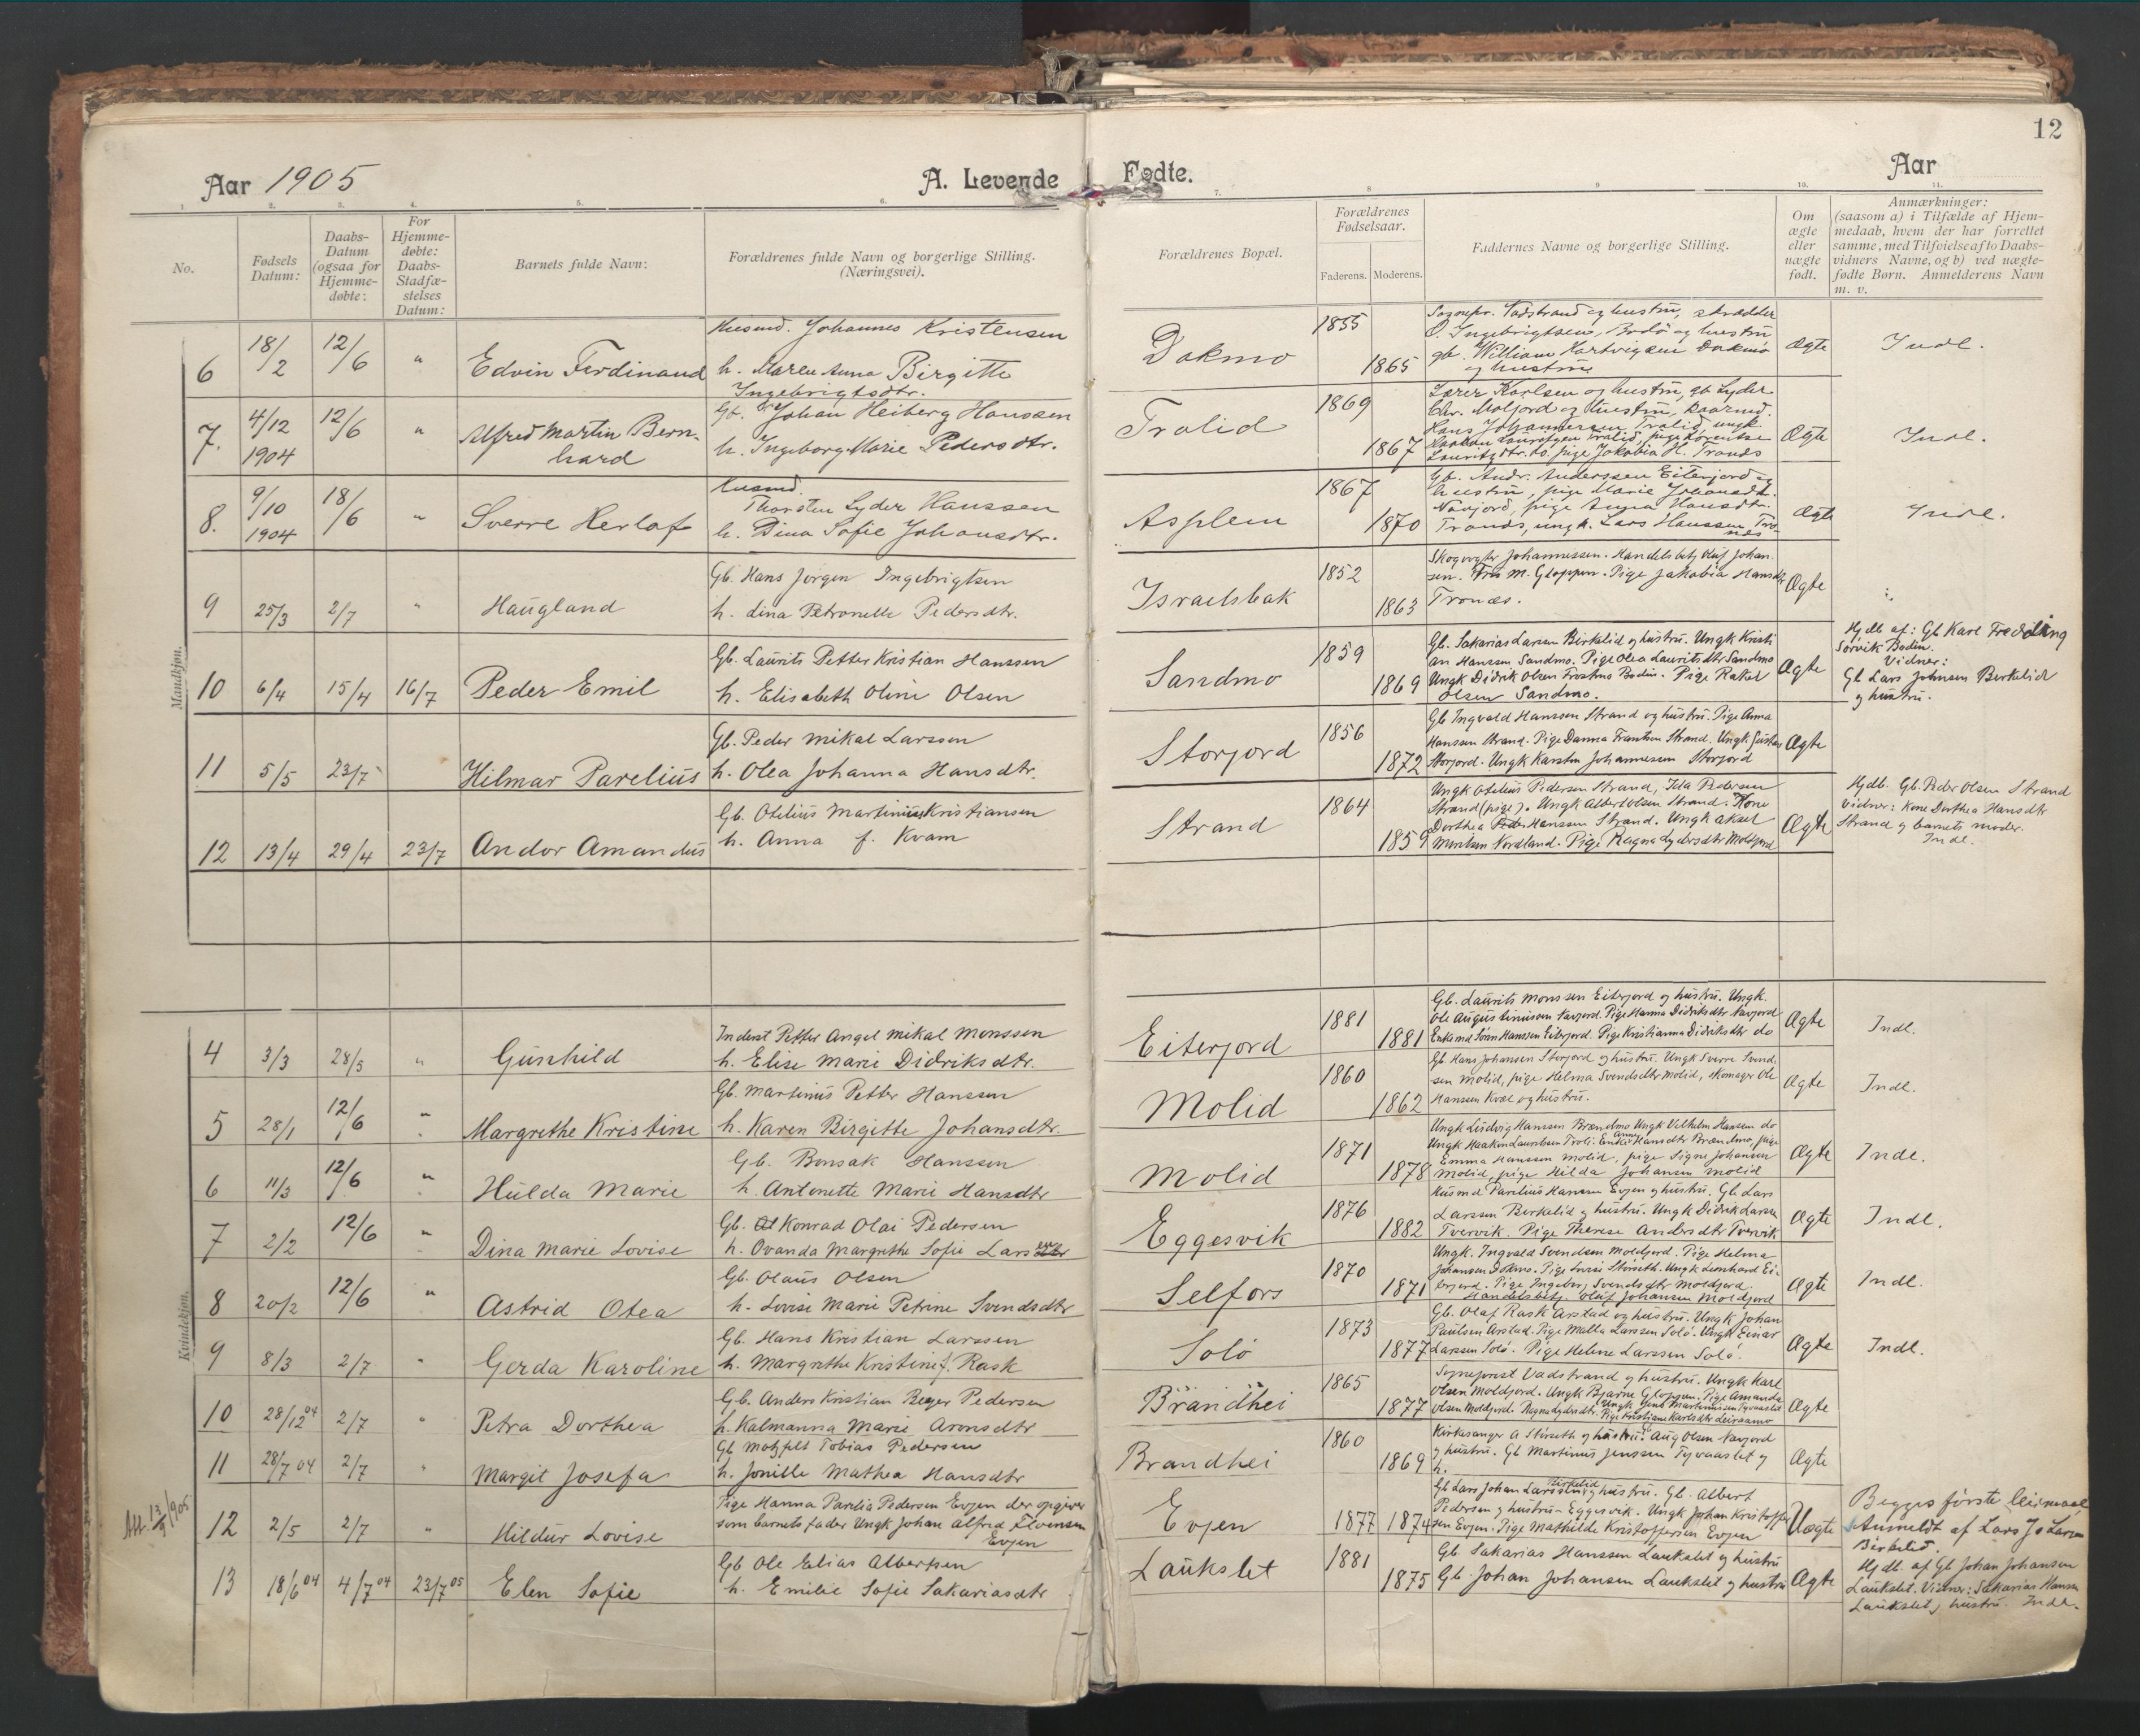 12
Aar 1905
A. Levende Fødte.
Aar
1. 2. 3. 4. 5. 6. 7. 8 9 10. 11.
No.
Fødsels Datum:
Daabs-Datum (ogsaa for Hjemme-døbte:
For Hjemme-døbte: Daabs-Stadfæ-stelses Datum:
Barnets fulde Navn:
Forældrenes fulde Navn og borgerlige Stilling. (Næringsvei).
Forældrenes Bopæl.
Forældrenes Fødselsaar.
Faderens. Moderens.
Faddernes Navne og borgerlige Stilling.
Om ægte eller uægte født.
Anmærkninger:
(saasom a) i Tilfælde af Hjem-
medaab, hvem der har forrettet
samme, med Tilføielse af to Daabs-
vidners Navne, og b) ved uægte-
fødte Børn. Anmelderens Navn
m. v.
Mandkjøn.
6 18/2 12/6 " Edvin Ferdinand
Husmd. Johannes Kristensen
h. Maren Anna Birgitte
Ingebrigtsdtr.
Dokmo 1855 1865
Sognepr. Vadstrand og hustru, skrædder
O. Ingebrigtsen, Bodø og hustru
gb. William Hartvigsen Dokmo
og hustru
Ægte Indl.
7. 4/12 1904 12/6 " Alfred Martin Bern-
hard
Gb. Johan Heiberg Hanssen
h. Ingeborg Marie Pedersdtr.
Trolid 1869 1867
Lærer Karlsen og hustru, gb Lyder
Chr. Moljord og hustru,
Hans Johannesen Trolid, ungk
Haakon Lauritzen Trolid, pige Lorentse
Lauritzdtr. do, pige Jakobia H. Tronæs
Ægte Indl.
8. 9/10 1904 18/6 " Sverre Herlof
Husmd.
Thorsten Lyder Hanssen
h. Dina Sofie Johansdtr.
Asplem 1867 1870
Gb. Andr. Anderssen Eiterjord og
hustru, pige Marie Johansdtr.
Navjord, pige Anna Hansdtr.
Tronæs, ungk. Lars Hanssen Tro-
næs
Ægte Indl.
9 25/3 2/7 " Haugland
Gb. Hans Jørgen Ingebrigtsen
h. Lina Petronelle Pedersdtr.
Israelsbak 1852 1863
Skogvogter Johannessen. Handelsbetj Oluf Johan-
sen. Frk M. Gloppen. Pige Jakobia Hansdtr
Tronæs.
Ægte
10 6/4 15/4 16/7 Peder Emil
Gb. Laurits Petter Kristian Hanssen
h. Elisabeth Oline Olsen
Sandmo 1859 1869
Gb. Sakarias Larsen Birkelid og hustru. Ungk Kristi
an Hanssen Sandmo. Pige Olea Lauritsdtr Sandmo
Ungk Didrik Olsen Frostmo Bodin. Pige Rakel
Olsen Sandmo.
Ægte
Hjdb af: Gb Karl Fredding
Sørvik Bodin.
Vidner:
Gb Lars Johnsen Birkelid
og hustru.
11 5/5 23/7 Hilmar Parelius
Gb. Peder Mikal Larssen
h. Olea Johanna Hansdtr.
Storjord 1856 1872
Gb Ingvald Hanssen Strand og hustru. Pige Anna
Hanssen Strand. Pige Danna Frantsen Strand. Ungk Gustav
Storjord. Ungk Karsten Johannesen Storjord
Ægte
12 13/4 29/4 23/7 Andor Amandus
Gb. Otelius Martinius Kristiansen
h. Anna f. Kvam
Strand 1864 1859
Ungk Otelius Pedersen Strand, Ida Pedersen
Strand (pige). Ungk Albert Olsen Strand. Kone
Dorthea Hanssen Strand. Ungk Aksel
Moritsen Nordland. Pige Ragna Lydersdtr Moldjord
Ægte
Hjdb. Gb. Peder Olsen Strand
Vidner: Kone Dorthea Hansdtr
Strand og barnets moder.
Indl.
Kvindekjøn.
4 3/3 28/5 " Gunhild
Inderst Petter Angel Mikal Monssen
h. Elise Marie Didriksdtr.
Eiterjord 1881 1881
Gb. Laurits Monssen Eiterjord og hustru. Ungk.
Ole Augustinusen Navjord. Pige Hanna Didriksdtr Navjord
Enkemd Sønn Hanssen Eiterjord. Pige Kristianna Didriksdtr do
Ægte Indl.
5 28/1 12/6 " Margrethe Kristine
Gb. Martinus Petter Hanssen
h. Karen Birgitte Johansdtr.
Molid 1860 1862
Gb. Hans Johansen Storjord og hustru. Ungk Sverre Svend-
sen Molid, pige Helma Svendsdtr Molid, skomager Ole
Hanssen Kvæl og hustru.
Ægte Indl.
6 11/3 12/6 " Hulda Marie
Gb. Bonsak Hanssen
h. Antonette Marie Hansdtr
Molid 1871 1878
Ungk Ludvig Hanssen Brændmo Ungk Vilhelm Hansen do
Ungk Haakon Lauritsen Troli. Enke Anne Hansdtr Brændmo, pige
Emma Hanssen Molid, pige Signe Johansen
Molid, pige Hilda Johansen Molid
Ægte Indl.
7 2/2 12/6 " Dina Marie Lovise
Gb. Konrad Olai Pedersen
h. Ovanda Margrethe Sofie Larsen
Eggesvik 1876 1882
Husmd Parelius Hanssen Evjen og hustru. Gb. Lars
Larssen Birkelid og hustru. Ungk Didrik Larsen
Tvervik. Pige Therese Andersdtr Tvervik
Ægte Indl.
8 20/2 12/6 " Astrid Otea
Gb. Olaus Olsen
h. Lovise Marie Petrine Svendsdtr
Selfors 1870 1871
Ungk. Ingvald Svendsen Moldjord. Pige Helma
Johansen Dokmo. Pige Lovise Storseth. Ungk Leonhard Ei-
terjord. Pige Ingeborg Svendsdtr Moldjord.
Handelsbetj. Oluf Johansen Moldjord
Ægte Indl.
9 8/3 2/7 " Gerda Karoline
Gb. Hans Kristian Larssen
h. Margrethe Kristine f. Rask
Solø 1873 1877
Gb. Olaf Rask Arstad og hustru. Ungk Johan
Paulsen Arstad. Pige Malla Larssen Solø. Ungk Einar
Larssen Solø. Pige Helene Larssen Solø.
Ægte Indl.
10 28/12 04 2/7 " Petra Dorthea
Gb. Anders Kristian Beyer Pedersen
h. Kalmanna Marie Aronsdtr
Brandhei 1865 1877
Sogneprest Vadstrand og hustru. Ungk Karl
Olsen Moldjord. Ungk Bjarne Gloppen. Pige Amanda
Olsen Moldjord. Ragna Lydersdtr. Ungk Jens Martinussen Tyvaaslet
Pige Kristiane Karlsdtr Leiraamo
Ægte
11 28/7 04 2/7 " Margit Josefa
Gb Motzfelt Tobias Pedersen
h. Jonille Mathea Hansdtr
Brandhei 1860 1869
Kirkesanger A Storseth og hustru. Aug Olsen Navjord
og hustru. Gb Martinus Jenssen Tyvaaslet og
h.
Ægte
Att. 13/9 1905
12 2/5 2/7 " Hildur Lovise
Pige Hanna Parelia Pedersen Evjen der opgiver
som barnets fader Ungk Johan Alfred Evensen
Evjen
Evjen 1877 1874
Gb Lars Johan Larssen Birkelid og hustru. Gb. Albert
Pedersen og hustru - Eggesvik. Ungk Johan Kristoffer-
sen Evjen. Pige Mathilde Kristoffersen Evjen
Uægte
Begges første leiermaal
Anmeldt af Lars Jo Larsen
Birkelid.
13 18/6 04 4/7 04 23/7 05 Elen Sofie
Gb Ole Elias Albertsen
h. Emilie Sofie Sakariasdtr
Laukslet 1881 1875
Gb. Sakarias Hanssen Laukslet og hustru
Gb. Johan Johansen Laukslet og hustru
Ægte
Hjdb. af Gb Johan Johansen
Laukslet. Vidner: Sakarias Hanssen
Laukslet og hustru. Indl.